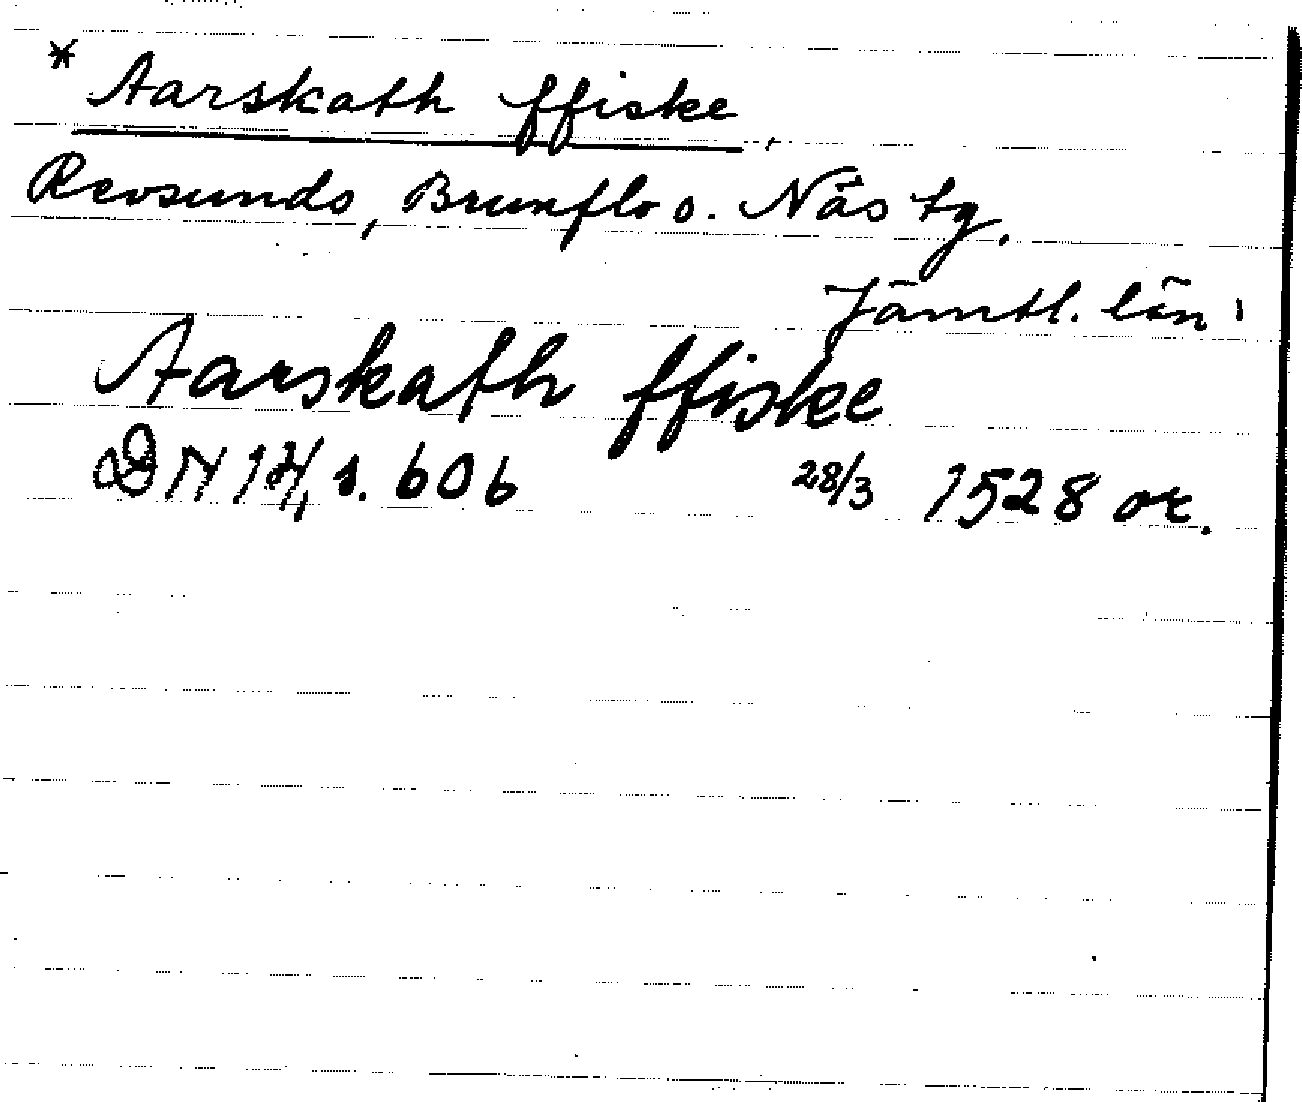 * Aarskath ffiske
Revsunds, Brunflo o. Näs tg.
Jämtl. län
Aarskath ffiske
DN 14, s. 606 28/3 1528 or.